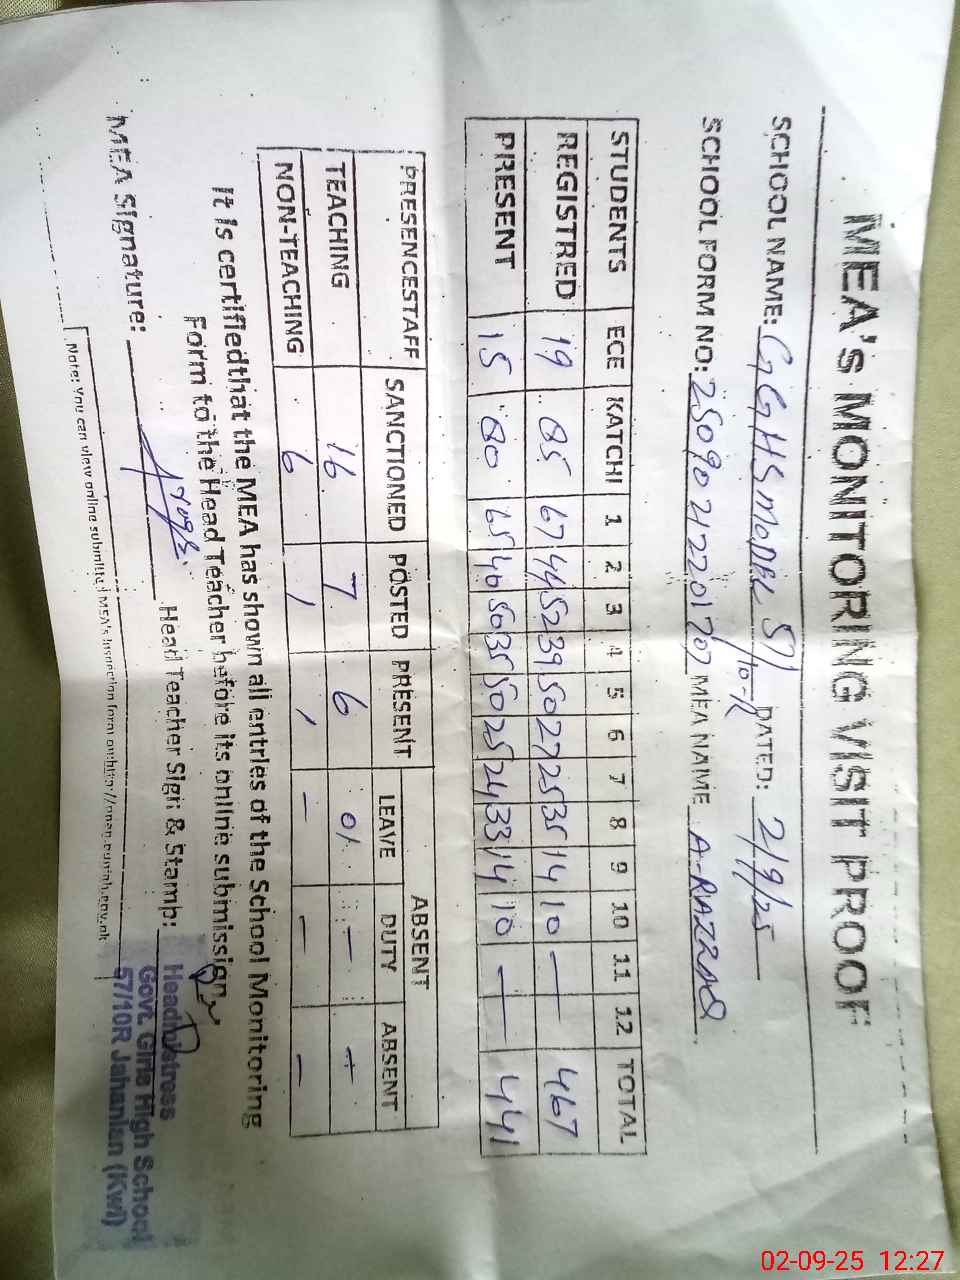 MEA's MONITORING VISIT PROOF
SCHOOL NAME: GGHS MODEL 57/10-R DATED: 2/9/25
SCHOOL FORM NO: MEA NAME A-RAZZAQ
STUDENTS ECE KATCHI 1 2 3 4 5 6 7 8 9 10 11 12 TOTAL
REGISTRED 19 85 67 44 52 39 50 27 25 35 14 10 — 467
PRESENT 15 80 65 40 50 35 50 25 24 33 14 10 — 441
PRESENCESTAFF SANCTIONED POSTED PRESENT ABSENT
LEAVE DUTY ABSENT
TEACHING 16 7 6 01 - -
NON-TEACHING 6 1 1 - - -
It is certifiedthat the MEA has shown all entries of the School Monitoring
Form to the Head Teacher before its online submission.
MEA Signature: Head Teacher Sign & Stamp:
Headmistress
Govt. Girls High School
57/10R Jahanian (Kwl)
Note: You can view online submitted MEA's Inspection form on:http://open.punjab.gov.pk
02-09-25 12:27